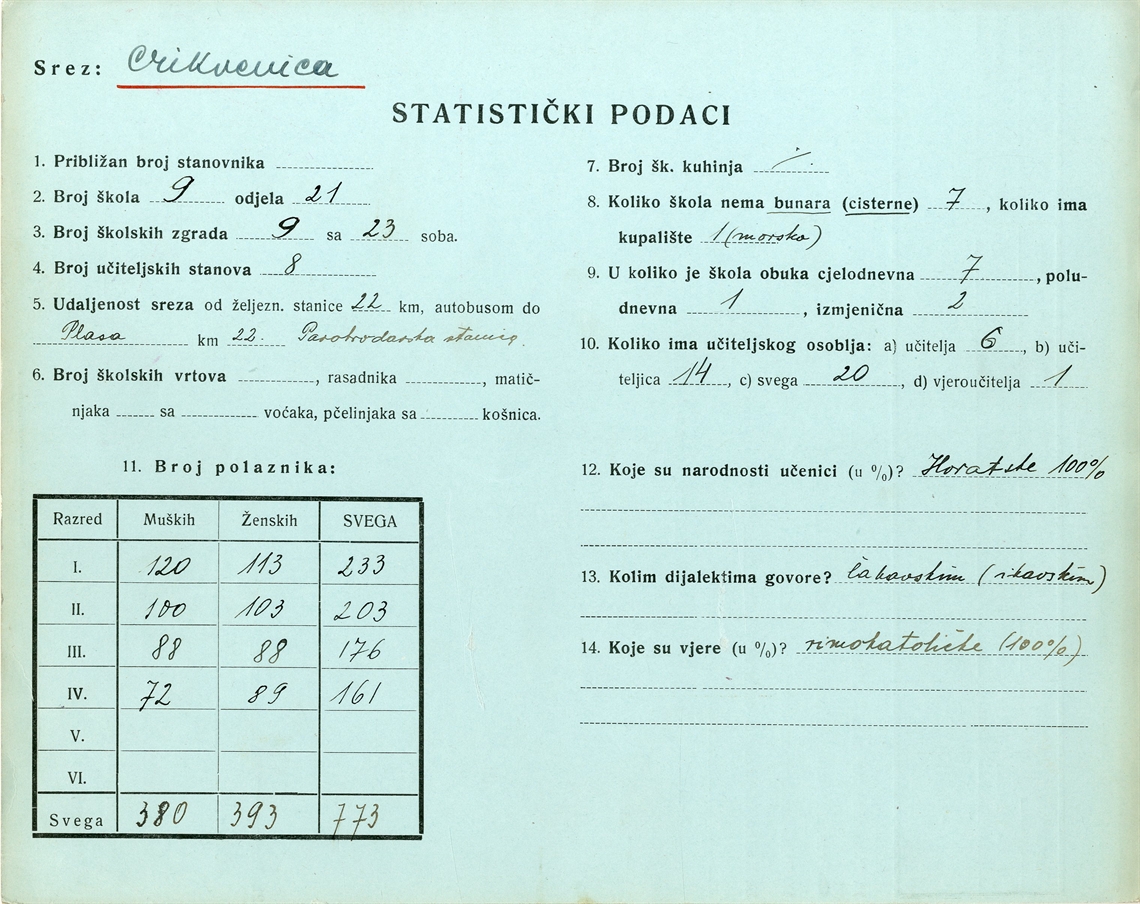 Srez: Crikvenica
STATISTIČKI PODACI
1. Približan broj stanovnika
2. Broj škola 9 odjela 21
3. Broj školskih zgrada 9 sa 23 soba.
4. Broj učiteljskih stanova 8
5. Udaljenost sreza od željezn. stanice 22 km, autobusom do
Plasa km 22. Parobrodarska
6. Broj školskih vrtova , rasadnika , matič-
njaka sa voćaka, pčelinjaka sa košnica.
7. Broj šk. kuhinja
8. Koliko škola nema bunara (cisterne) 7, koliko ima
kupalište 1 (morsko)
9. U koliko je škola obuka cjelodnevna 7, polu-
dnevna 1, izmjenična 2
10. Koliko ima učiteljskog osoblja: a) učitelja 6, b) uči-
teljica 14, c) svega 20, d) vjeroučitelja 1
11. Broj polaznika:
Razred Muških Ženskih SVEGA
I. 120 113 233
II. 100 103 203
III. 88 88 176
IV. 72 89 161
V.
VI.
Svega 380 393 773
12. Koje su narodnosti učenici (u %)? 100%
13. Kolim dijalektima govore? čakavskim (ikavskim)
14. Koje su vjere (u %)? rimokatoličke (100%)